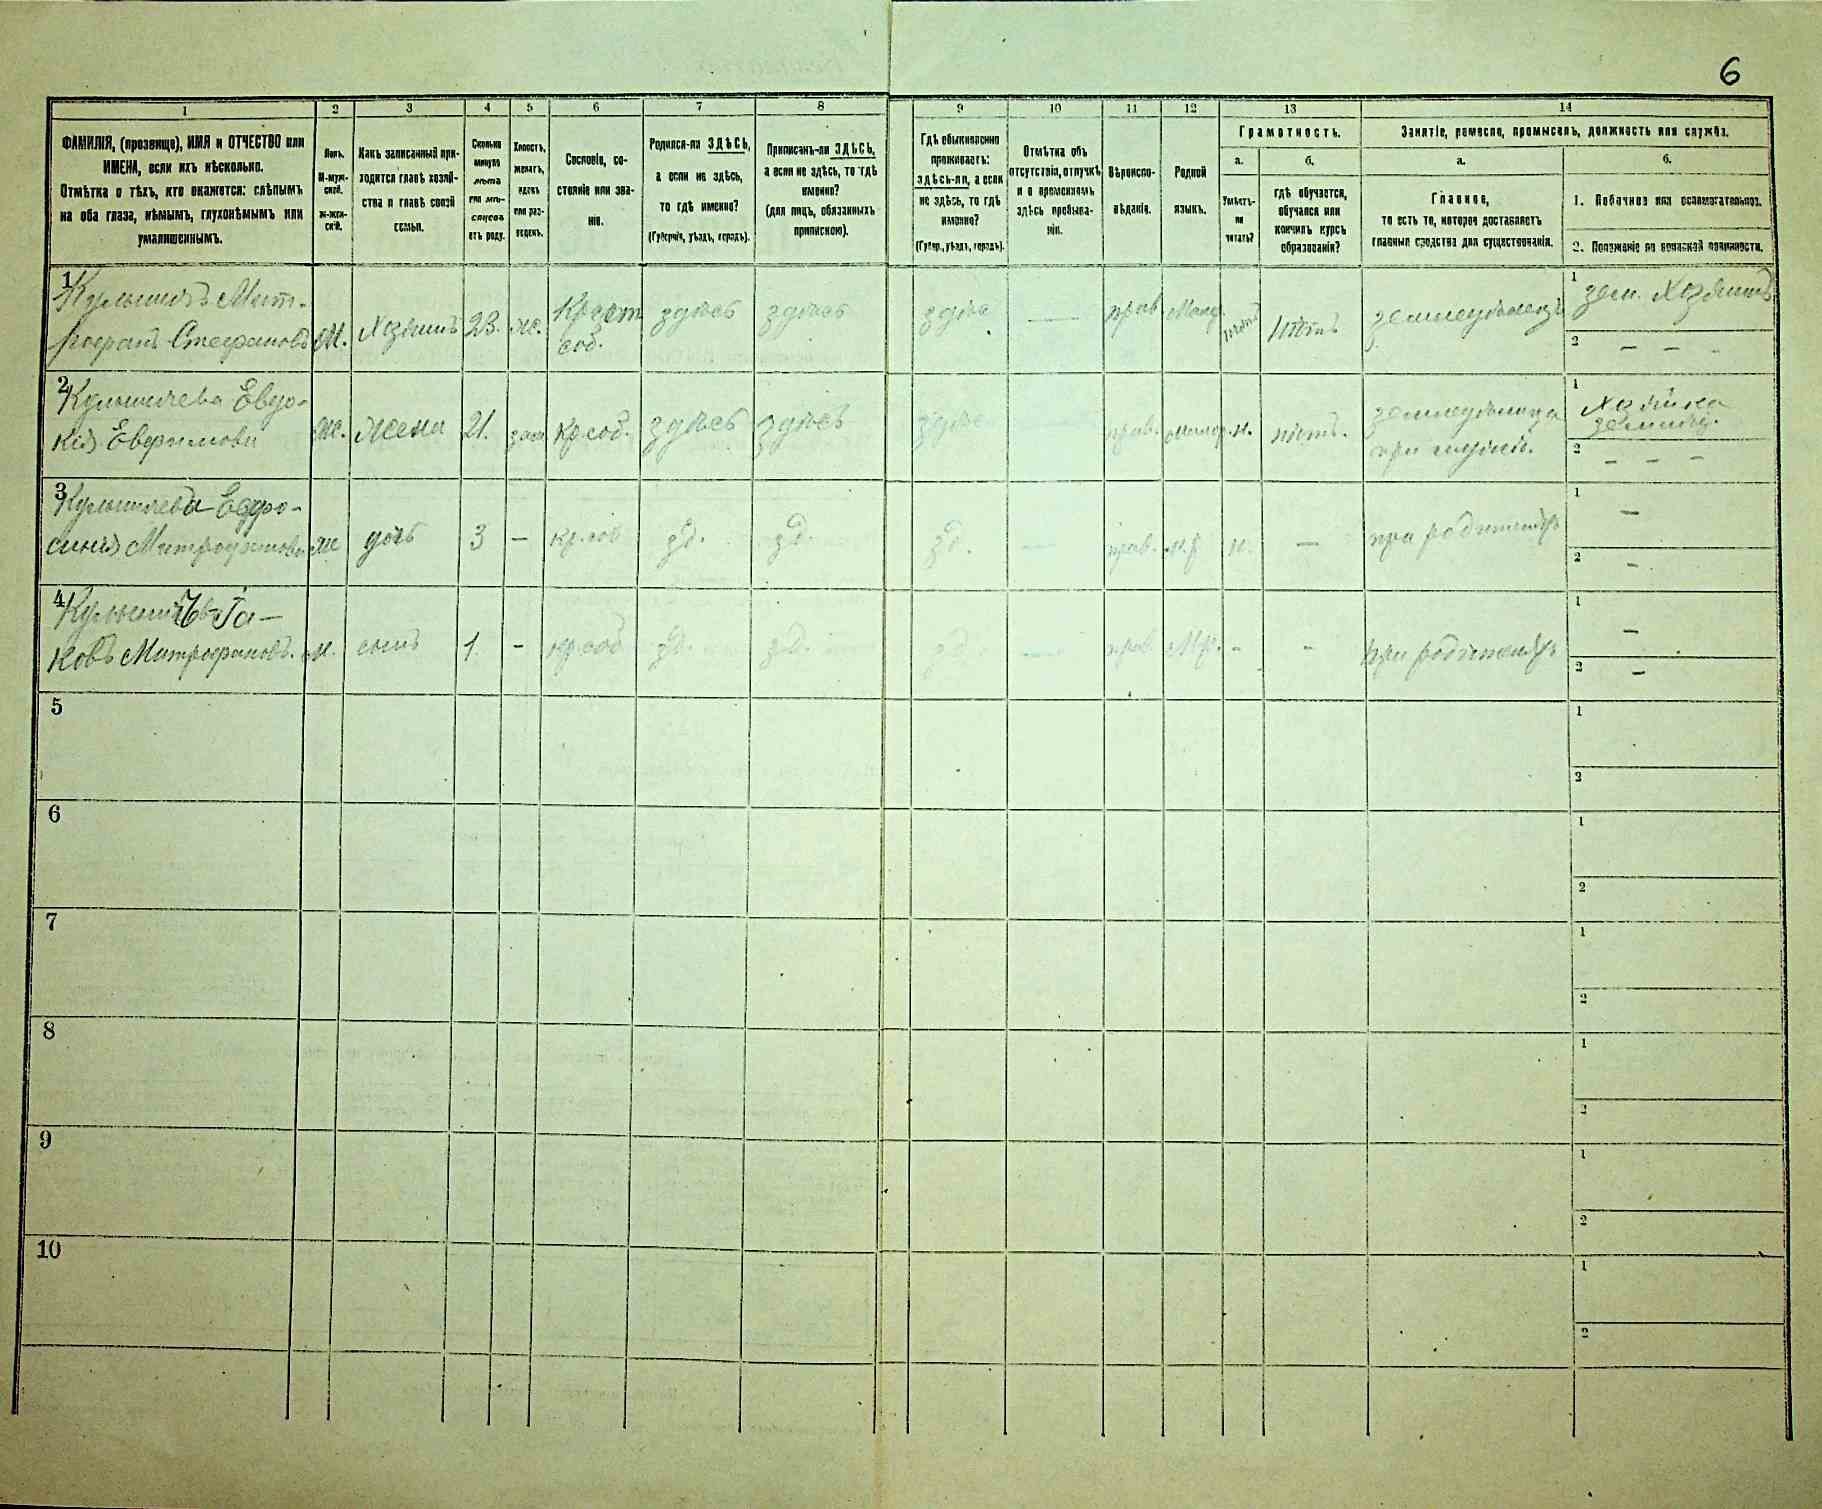 6
1 2 3 4 5 6 7 8 9 10 11 12 13 14
ФАМИЛІЯ, (прозвище), ИМЯ и ОТЧЕСТВО или
ИМЕНА, если ихъ нѣсколько.
Отмѣтка о тѣхъ, кто окажется: слѣпымъ
на оба глаза, нѣмымъ, глухонѣмымъ или
умалишеннымъ.
Полъ.
М-муж-
ской.
ж-жен-
скій.
Какъ записанный при-
ходится главѣ хозяй-
ства и главѣ своей
семьи.
Сколько
минуло
лѣтъ
или мѣ-
сяцевъ
отъ роду.
Холостъ,
женатъ,
вдовъ
или раз-
веденъ.
Сословіе, со-
стояніе или зва-
ніе.
Родился-ли ЗДѢСЬ,
а если не здѣсь,
то гдѣ именно?
(Губернія, уѣздъ, городъ).
Приписанъ-ли ЗДѢСЬ,
а если не здѣсь, то гдѣ
именно?
(для лицъ, обязанныхъ
припискою).
Гдѣ обыкновенно
проживаетъ:
здѣсь-ли, а если
не здѣсь, то гдѣ
именно?
(Губер., уѣздъ, городъ).
Отмѣтка объ
отсутствіи, отлучкѣ
и о временномъ
здѣсь пребыва-
ніи.
Вѣроиспо-
вѣданіе.
Родной
языкъ.
Грамотность.
а. б.
Умѣетъ-
ли
читать?
гдѣ обучается,
обучался или
кончилъ курсъ
образованія?
Занятіе, ремесло, промыселъ, должность или служба.
а. б.
Главное,
то есть то, которое доставляетъ
главныя средства для существованія.
1. Побочное или вспомогательное.
2. Положеніе по воинской повинности.
1
Мит-
рофанъ Стефановъ М. Хозяинъ 23. ж. Крест здѣсь здѣсь здѣсь — прав. нѣтъ нѣтъ землеудѣлецъ
соб.
1 зем. Хозяинъ
2 — — -
2
Евдо-
кія Евфимова ж. жена 21. зам кр соб. здѣсь здѣсь здѣсь прав. н. нѣтъ.
при мужѣ.
1 Хозяйка
2 — — —
3
Евфро-
синія Митрофанова ж дочь 3 — кр. соб зд. зд. зд. — прав. н. — при родителяхъ
1 —
2 —
4
Іа-
ковъ Митрофановъ. м. сынъ 1. - кр. соб зд. зд. зд. — прав - - при родителяхъ
1 —
2 —
5 1
2
6 1
2
7 1
2
8 1
2
9 1
2
10 1
2